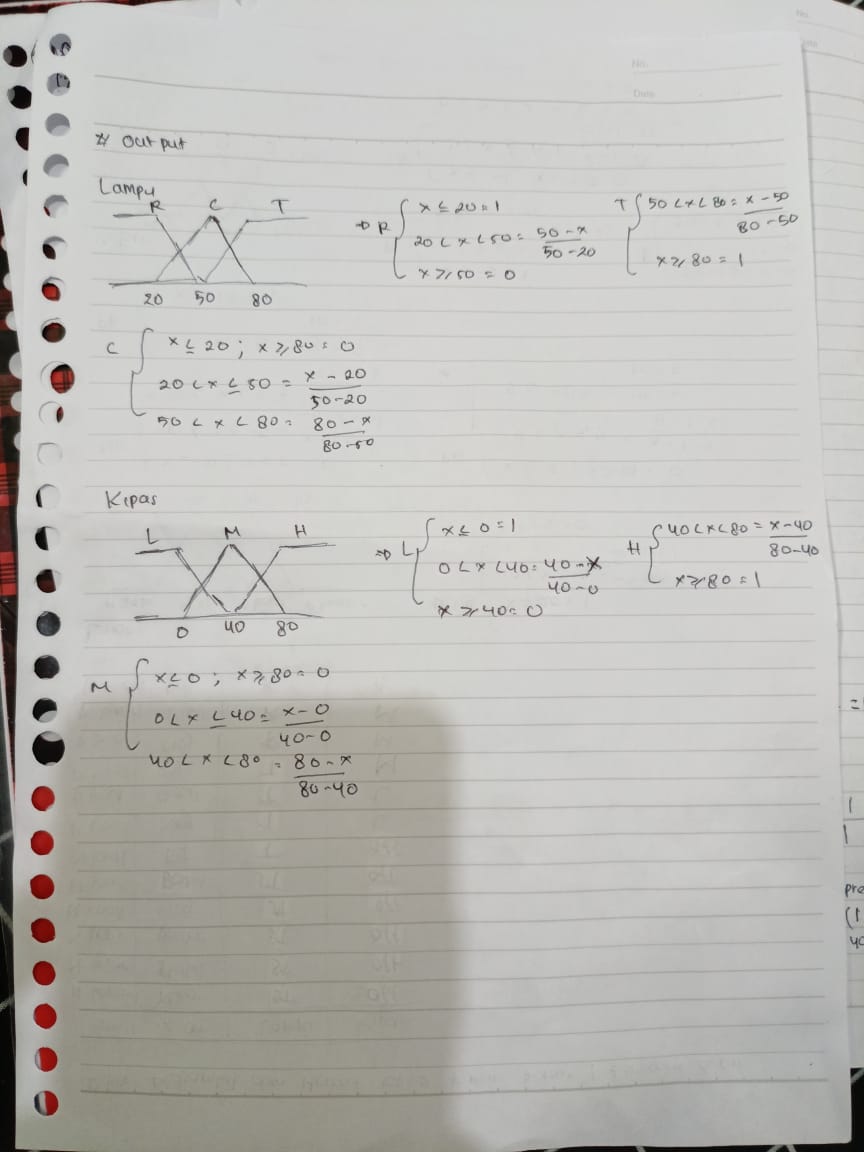 No.
Date
# Output
Lampu
R C T
20 50 80
⇒ R { x ≤ 20 = 1
20 < x < 50 = 50 - x / 50 - 20
x ≥ 50 = 0
T { 50 < x < 80 = x - 50 / 80 - 50
x ≥ 80 = 1
C { x ≤ 20 ; x ≥ 80 = 0
20 < x ≤ 50 = x - 20 / 50 - 20
50 < x < 80 = 80 - x / 80 - 50
Kipas
L M H
0 40 80
⇒ L { x ≤ 0 = 1
0 < x < 40 = 40 - x / 40 - 0
x ≥ 40 = 0
H { 40 < x < 80 = x - 40 / 80 - 40
x ≥ 80 = 1
M { x ≤ 0 ; x ≥ 80 = 0
0 < x ≤ 40 = x - 0 / 40 - 0
40 < x < 80 = 80 - x / 80 - 40